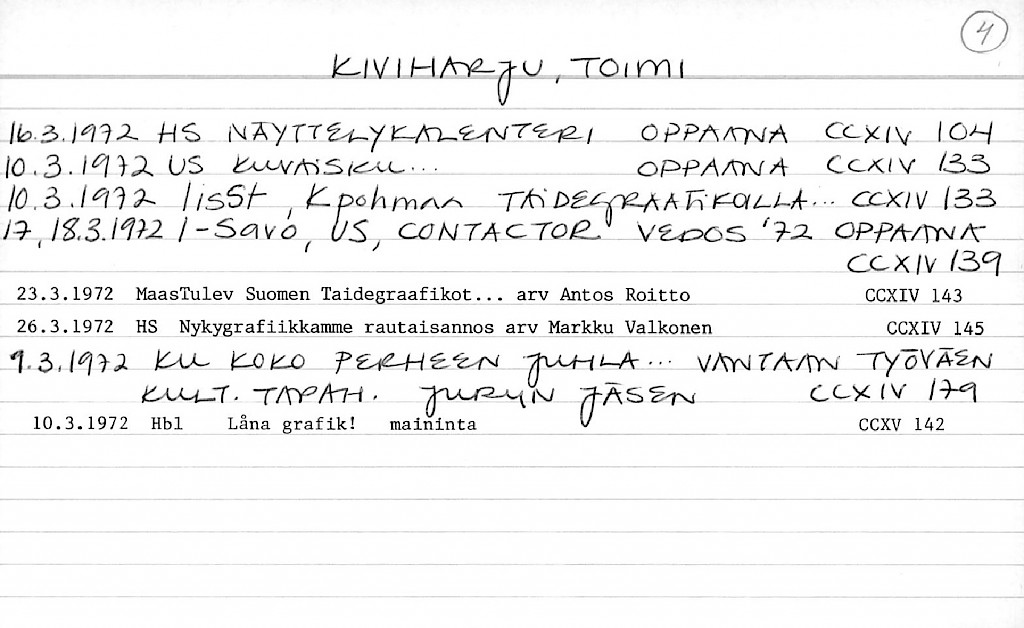 4
KIVIHARJU, TOIMI
16.3.1972 HS NÄYTTELYKALENTERI OPPAANA CCXIV 104
10.3.1972 US KUVAISKU... OPPAANA CCXIV 133
10.3.1972 IisSt, Kpohman TAIDEGRAAFIKOILLA... CCXIV 133
17, 18.3.1972 I-Savo, US, CONTACTOR VEDOS '72 OPPAANA
CCXIV 139
23.3.1972 MaasTulev Suomen Taidegraafikot... arv Antos Roitto CCXIV 143
26.3.1972 HS Nykygrafiikkamme rautaisannos arv Markku Valkonen CCXIV 145
9.3.1972 KU KOKO PERHEEN JUHLA... VANTAAN TYÖVÄEN
KULT. TAPAH. JURYN JÄSEN CCXIV 179
10.3.1972 Hbl Låna grafik! maininta CCXV 142